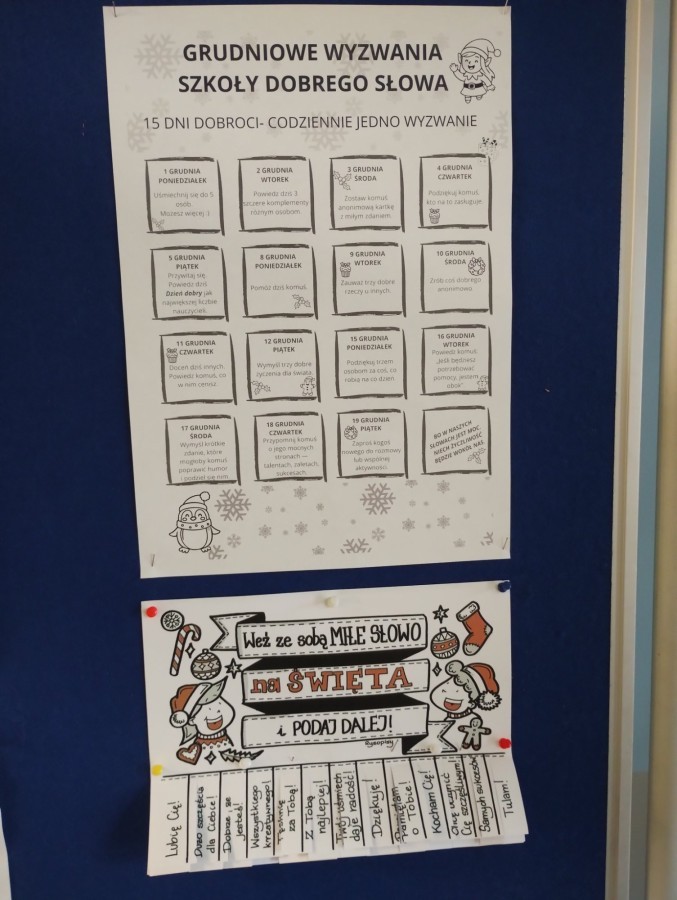 GRUDNIOWE WYZWANIA
SZKOŁY DOBREGO SŁOWA
15 DNI DOBROCI- CODZIENNIE JEDNO WYZWANIE
1 GRUDNIA
PONIEDZIAŁEK
Uśmiechnij się do 5
osób.
Możesz więcej :)
2 GRUDNIA
WTOREK
Powiedz dziś 3
szczere komplementy
różnym osobom.
3 GRUDNIA
ŚRODA
Zostaw komuś
anonimową kartkę
z miłym zdaniem.
4 GRUDNIA
CZWARTEK
Podziękuj komuś,
kto na to zasługuje.
5 GRUDNIA
PIĄTEK
Przywitaj się.
Powiedz dziś
Dzień dobry jak
największej liczbie
nauczycieli.
8 GRUDNIA
PONIEDZIAŁEK
Pomóż dziś komuś.
9 GRUDNIA
WTOREK
Zauważ trzy dobre
rzeczy u innych.
10 GRUDNIA
ŚRODA
Zrób coś dobrego
anonimowo.
11 GRUDNIA
CZWARTEK
Doceń dziś innych.
Powiedz komuś, co
w nim cenisz.
12 GRUDNIA
PIĄTEK
Wymyśl trzy dobre
życzenia dla świata.
15 GRUDNIA
PONIEDZIAŁEK
Podziękuj trzem
osobom za coś, co
robią na co dzień.
16 GRUDNIA
WTOREK
Powiedz komuś:
„Jeśli będziesz
potrzebować
pomocy, jestem
obok".
17 GRUDNIA
ŚRODA
Wymyśl krótkie
zdanie, które
mogłoby komuś
poprawić humor
i podziel się nim.
18 GRUDNIA
CZWARTEK
Przypomnij komuś
o jego mocnych
stronach —
talentach, zaletach,
sukcesach.
19 GRUDNIA
PIĄTEK
Zaproś kogoś
nowego do rozmowy
lub wspólnej
aktywności.
BO W NASZYCH
SŁOWACH JEST MOC.
NIECH ŻYCZLIWOŚĆ
BĘDZIE WOKÓŁ NAS.
Weź ze sobą MIŁE SŁOWO
na ŚWIĘTA
i PODAJ DALEJ!
Lubię Cię!
Dużo szczęścia
dla Ciebie!
Dobrze, że
jesteś!
Wszystkiego
kreatywnego!
za Tobą!
Z Tobą
najlepiej!
Twój uśmiech
daje radość!
Dziękuję!
Pamiętam
o Tobie!
Kocham Cię!
Chcę uczynić
Cię szczęśliwym!
Samych sukcesów
Tulam!